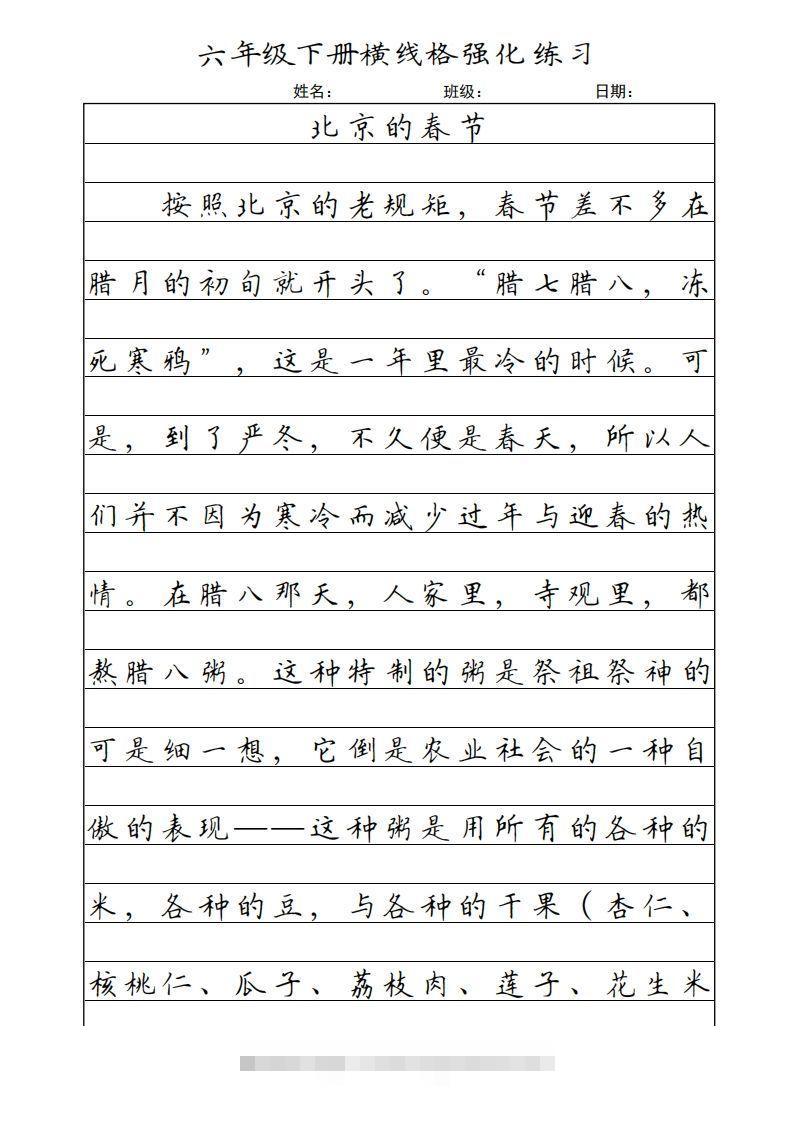 六年级下册横线格强化练习
姓名： 班级： 日期：
北京的春节
按照北京的老规矩，春节差不多在
腊月的初旬就开头了。“腊七腊八，冻
死寒鸦”，这是一年里最冷的时候。可
是，到了严冬，不久便是春天，所以人
们并不因为寒冷而减少过年与迎春的热
情。在腊八那天，人家里，寺观里，都
熬腊八粥。这种特制的粥是祭祖祭神的
可是细一想，它倒是农业社会的一种自
傲的表现——这种粥是用所有的各种的
米，各种的豆，与各种的干果（杏仁、
核桃仁、瓜子、荔枝肉、莲子、花生米